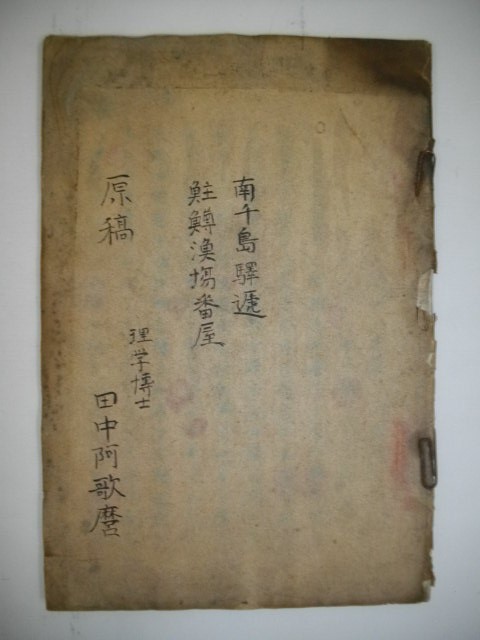 南千島驛遞
鮭鱒漁場番屋
原稿
理学博士
田中阿歌麿